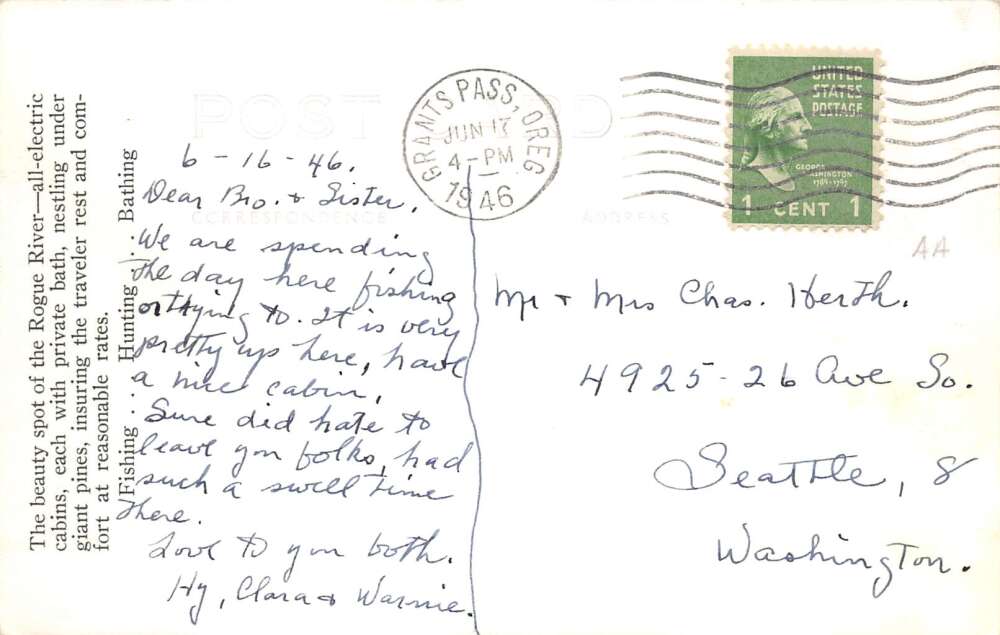 The beauty spot of the Rogue River—all-electric
cabins, each with private bath, nestling under
giant pines, insuring the traveler rest and com-
fort at reasonable rates.
Fishing . . Hunting . . Bathing
POST CARD
CORRESPONDENCE
ADDRESS
GRANTS PASS, OREG
JUN 17
4-PM
1946
UNITED
STATES
POSTAGE
GEORGE
WASHINGTON
1789-1797
1 CENT 1
AA
6-16-46.
Dear Bro. + Sister,
We are spending
the day here fishing
or trying to. It is very
pretty up here, have
a nice cabin,
Sure did hate to
leave you folks, had
such a swell time
there.
Love to you both.
Hy, Clara + Warnie.
Mr + Mrs Chas. Herth.
4925-26 Ave So.
Seattle, 8
Washington.